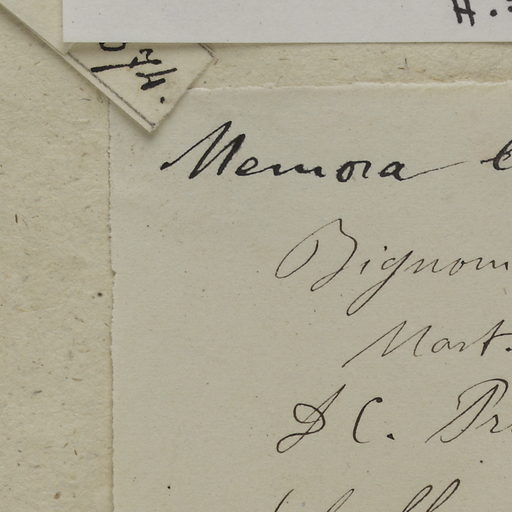 H.
Memora
Bignoni
Mart.
D C. Pr